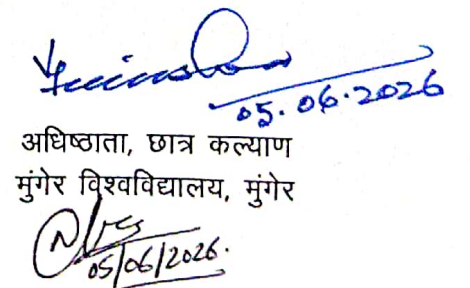 05.06.2026
अधिष्ठाता, छात्र कल्याण
मुंगेर विश्वविद्यालय, मुंगेर
05/06/2026.